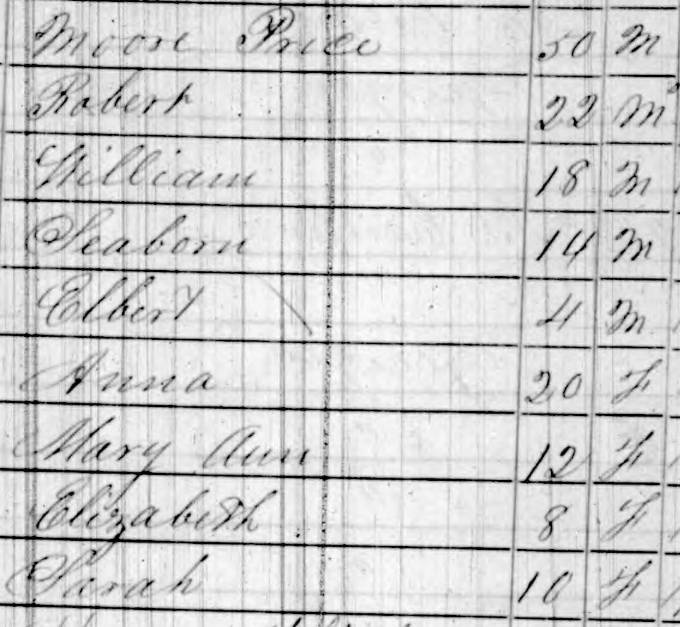 Moore Price 50 M
Robert 22 M
William 18 M
Seaborn 14 M
Elbert 4 M
Anna 20 F
Mary Ann 12 F
Elizabeth 8 F
Sarah 10 F